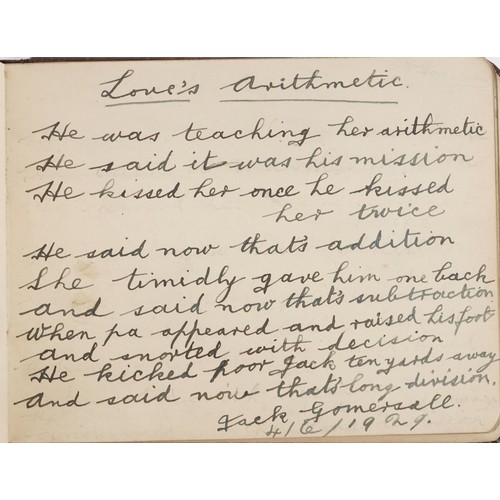 Love's Arithmetic.
He was teaching her arithmetic
He said it was his mission
He kissed her once he kissed
her twice
He said now that's addition
She timidly gave him one back
and said now that's subtraction
When pa appeared and raised his foot
and snorted with decision
He kicked poor Jack ten yards away
And said now that's long division.
Jack Gomersall.
4/6/1929.